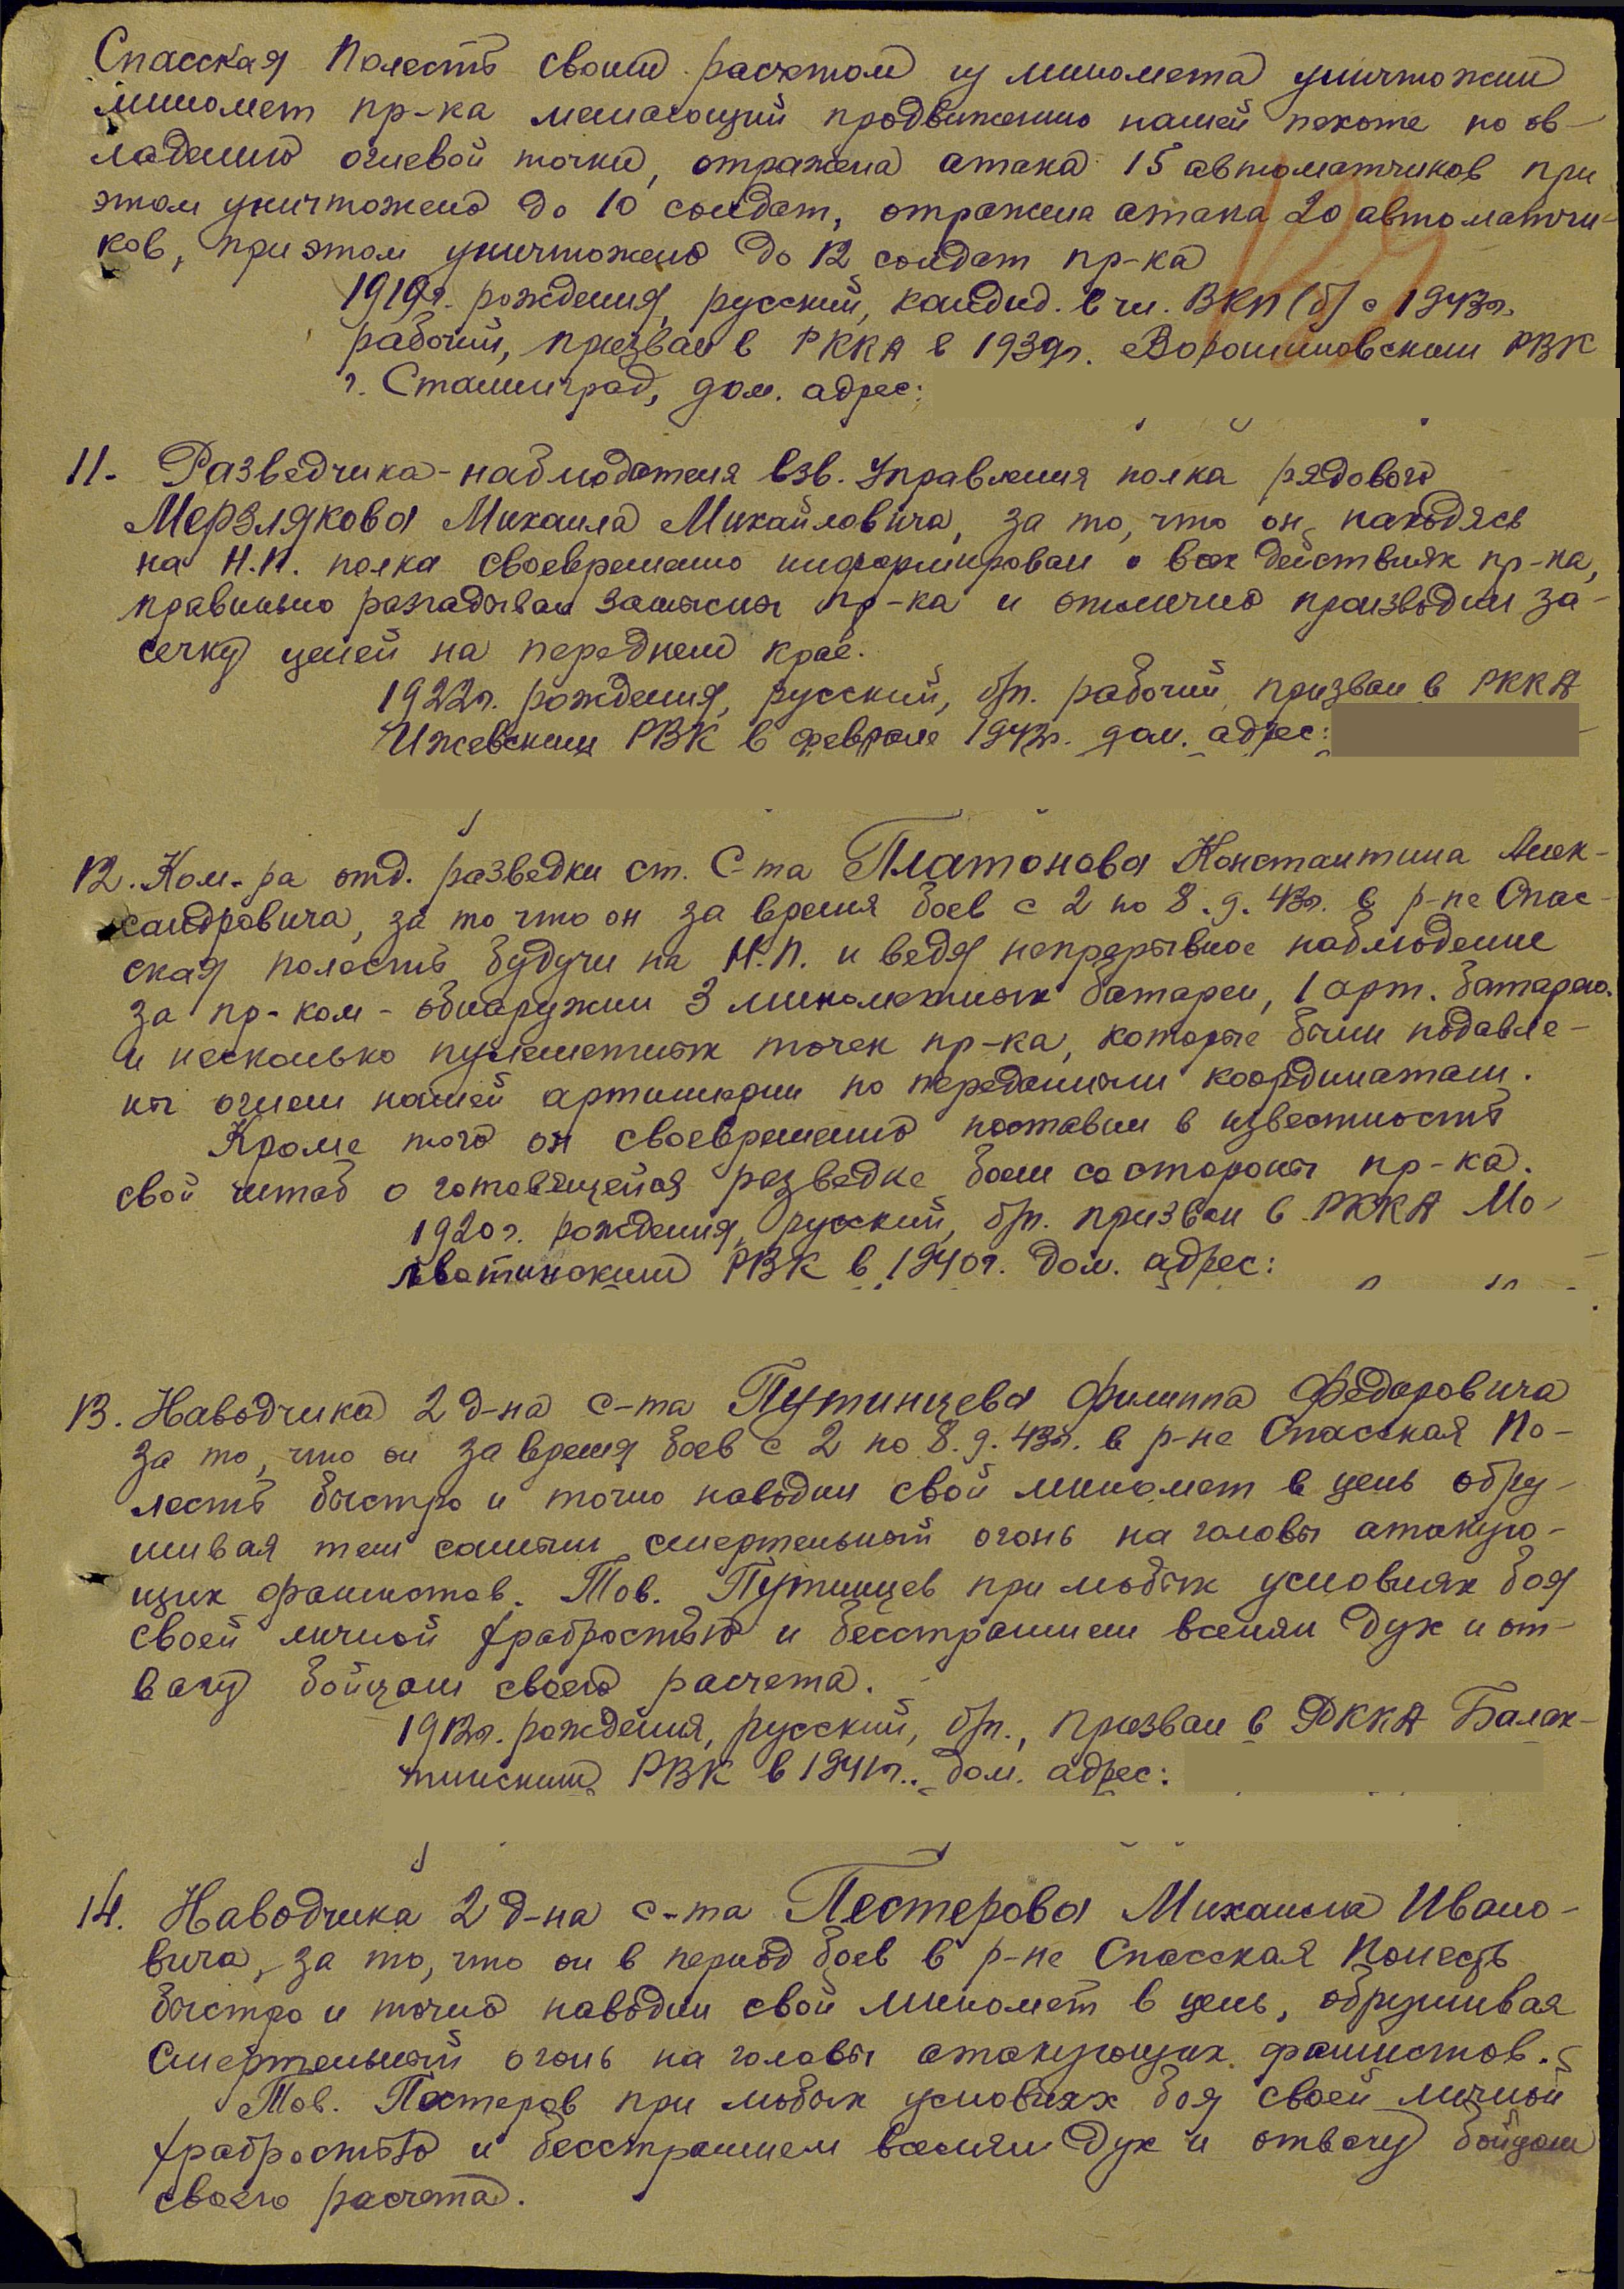 Спасская Полесть своим расчетом из миномета уничтожил
миномет пр-ка мешающий продвижению нашей пехоте по ов-
ладению огневой точки, отражена атака 15 автоматчиков при
этом уничтожено до 10 солдат, отражена атака 20 автоматчи-
ков, при этом уничтожено до 12 солдат пр-ка
1919г. рождения, русский, кандид. в чл. ВКП(б) с 1943г.
рабочий, призван в РККА в 1939г. Ворошиловским РВК
г. Сталинград, дом. адрес:
11. Разведчика-наблюдателя взв. Управления полка рядового
Мерзлякова Михаила Михайловича, за то, что он, находясь
на Н.П. полка своевременно информировал о всех действиях пр-ка,
правильно разгадывал замыслы пр-ка и отлично производил за-
сечку целей на переднем крае.
1922г. рождения, русский, б/п. рабочий, призван в РККА
Ижевским РВК в феврале 1942г. дом. адрес:
12. Ком-ра отд. разведки ст. С-та Платонова Константина Алек-
сандровича, за то что он за время боев с 2 по 8.9.43г. в р-не Спас-
ская полесть будучи на Н.П. и ведя непрерывное наблюдение
за пр-ком - обнаружил 3 минометных батареи, 1 арт. батарею.
и несколько пулеметных точек пр-ка, которые были подавле-
ны огнем нашей артиллерии по переданным координатам.
Кроме того он своевременно поставил в известность
свой штаб о готовящейся разведке боем со стороны пр-ка.
1920г. рождения, русский, б/п. призван в РККА Мо-
лватинским РВК в 1940г. дом. адрес:
13. Наводчика 2 д-на с-та Путинцева Филиппа Федоровича
за то, что он за время боев с 2 по 8.9.43г. в р-не Спасская По-
лесть быстро и точно наводил свой миномет в цель обру-
шивая тем самым смертельный огонь на головы атакую-
щих фашистов. Тов. Путинцев при любых условиях боя
своей личной храбростью и бесстрашием вселял дух и от-
вагу бойцам своего расчета.
1912г. рождения, русский, б/п., призван в РККА Балах-
тинским РВК в 1941г.. дом. адрес:
14. Наводчика 2 д-на с-та Пестерова Михаила Ивано-
вича, за то, что он в период боев в р-не Спасская Полесть
быстро и точно наводил свой миномет в цель, обрушивая
смертельный огонь на головы атакующих фашистов.
Тов. Пестеров при любых условиях боя своей личной
храбростью и бесстрашием вселял дух и отвагу бойцам
своего расчета.